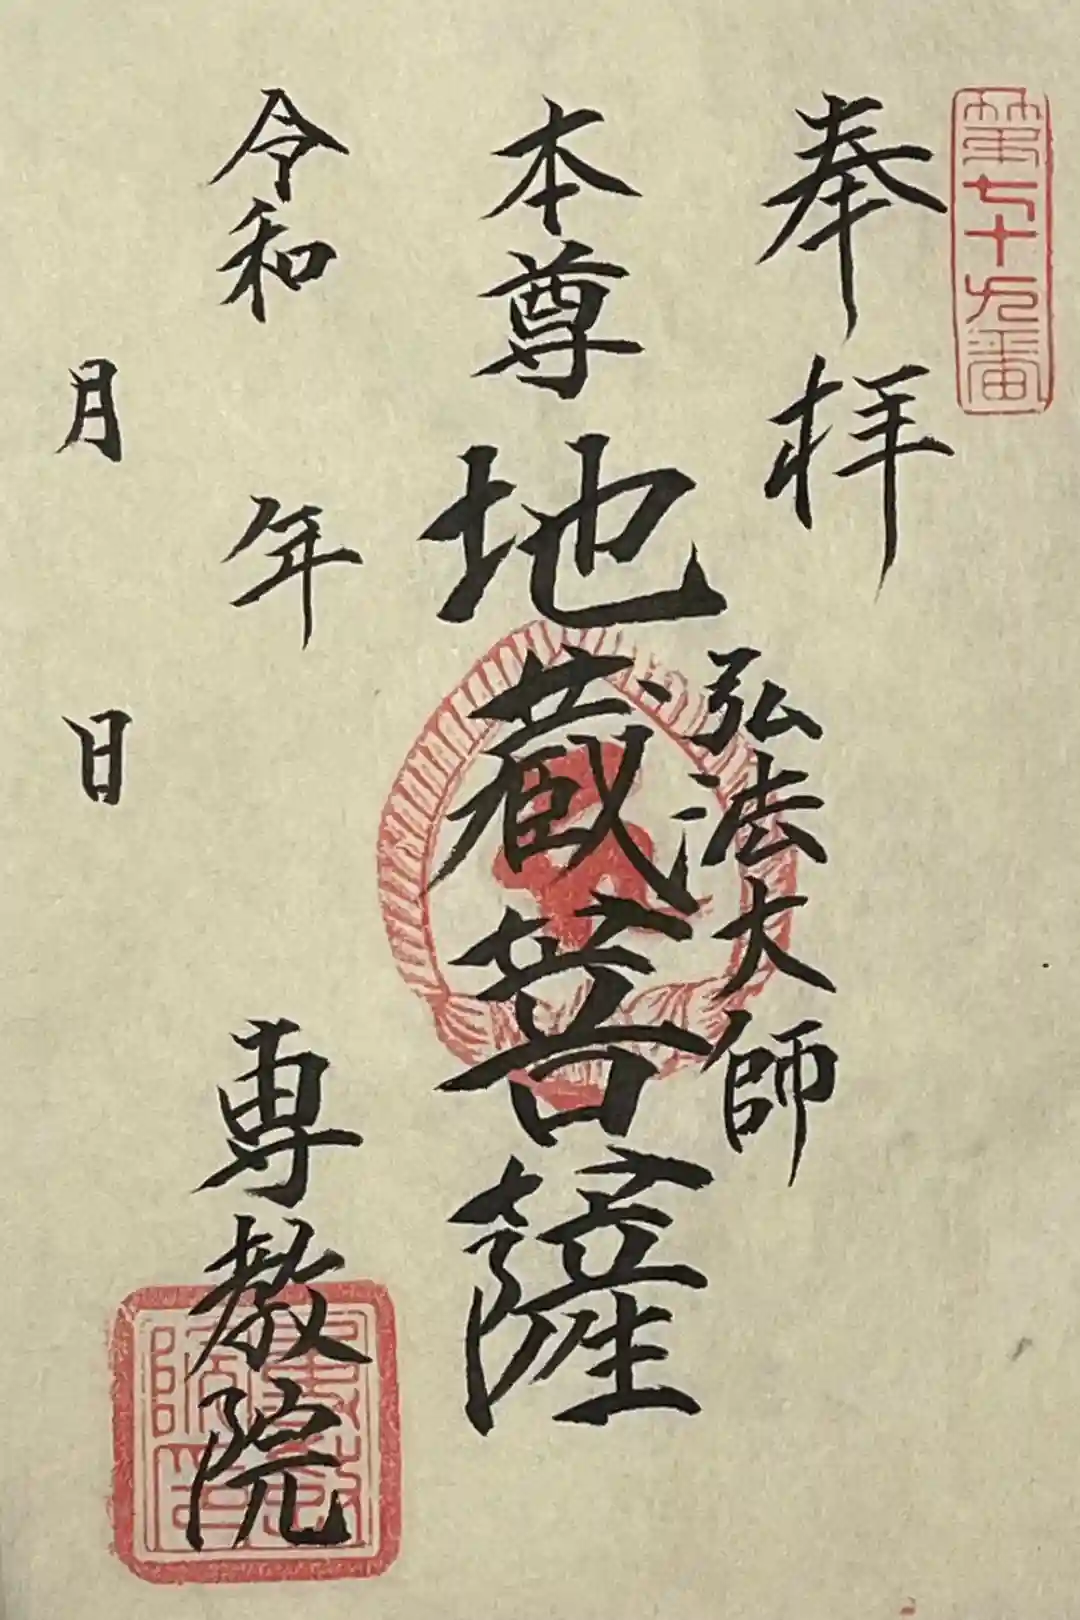 第七十九番
奉拝
弘法大師
本尊地蔵菩薩
令和 年
月 日
専教院
専教院印